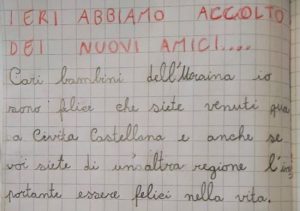 IERI ABBIAMO ACCOLTO
DEI NUOVI AMICI....
Cari bambini dell'Ucraina io
sono felice che siete venuti qua
a Civita Castellana e anche se
voi siete di un'altra regione l'im
portante essere felici nella vita.